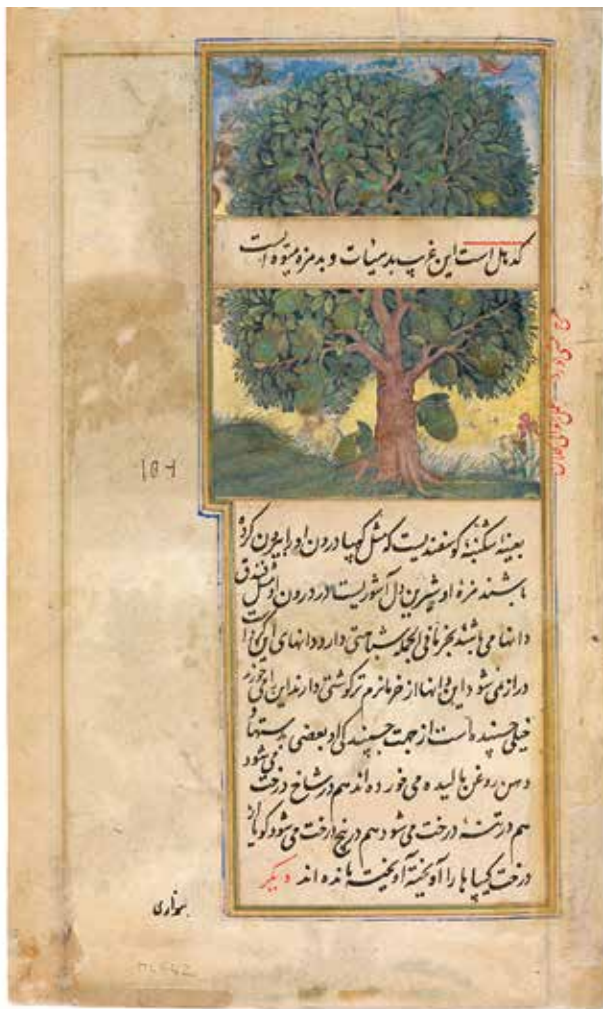 کدهل است این غریب بدهیئات و بدمزه میوه ایست
بعینه شکنبهٔ گوسفندیست که مثل گیپا درون او را بیرون کرده
باشند مزهٔ او شیرین دل آشوریست در درون او مثل فندق
دانها می باشند بخرما فی الجمله شباهتی دارد دانهای این
دراز می شود این دانها از خرما نرم تر گوشتی دارند این را می خورند
خیلی چسپنده است از جهت چسپندگی او بعضی بدستها و
دهن روغن مالیده می خورده اند هم در شاخ درخت می شود
هم در تنهٔ درخت می شود هم در بیخ درخت می شود گویا از
درخت گیپاها را آویخته آویخته مانده اند دیگر